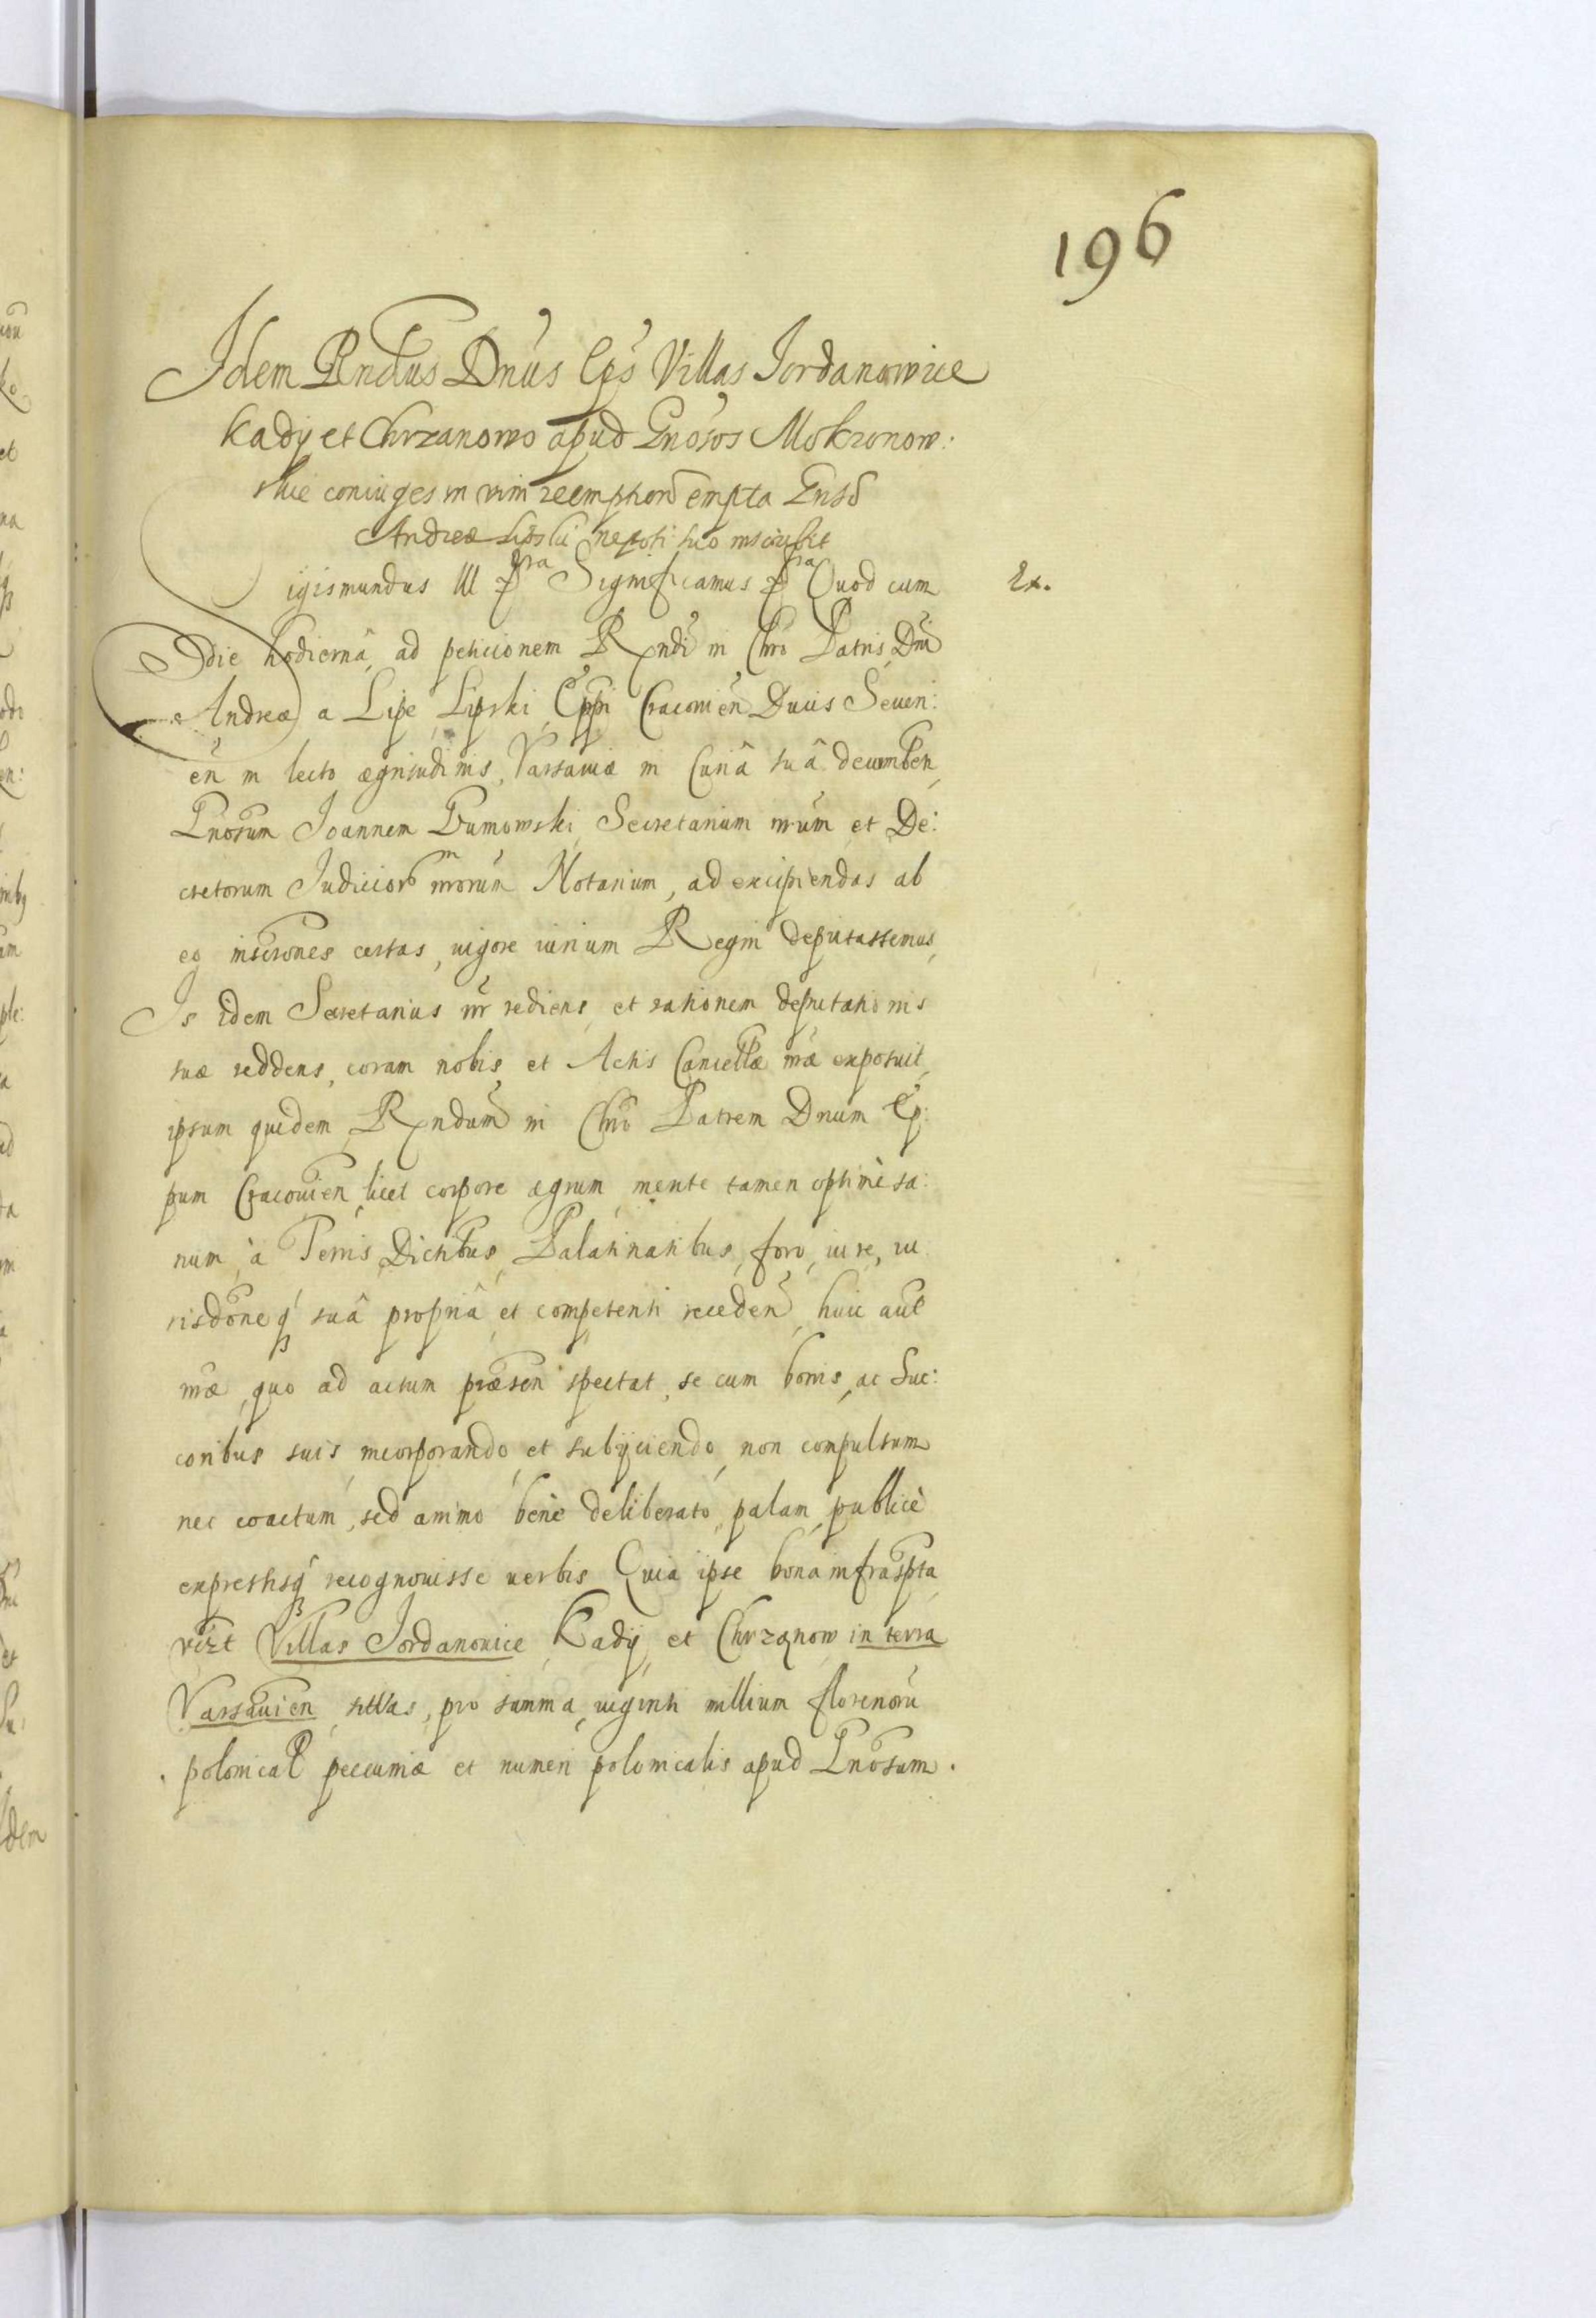 196
Idem Rndus Dnus Eps Villas Jordanowice
Kady et Chrzanowo apud Gnosos Mokronow:
skie coniuges in vim reemption empta Gnso
Andreæ Lipski nepoti suo inscribit
Sigismundus III p̄ra Significamus p̄ra Quod cum
Ex.
die hodiernâ, ad peticionem Rndi in Chro Patris, Dni
Andreæ a Lipe Lipski, Eppi Cracouien Ducis Seueri:
en in lecto ægritudinis, Varsauiæ in Curiâ suâ decumben,
Gnosum Joannem Gumowski, Secretarium nrum et De:
cretorum Judicior nrorum Notarium, ad excipiendas ab
eo inscrones certas, uigore iurium Regni deputassemus,
Is idem Secretarius nr rediens, et rationem deputationis
suæ reddens, coram nobis et Actis Cancellæ nræ exposuit,
ipsum quidem Rndum in Chro Patrem Dnum Ep:
pum Cracouien, licet corpore ægrum, mente tamen optimè sa:
num, à Terris, Dictibus, Palatinatibus, foro, iure, iu
risdoneq suâ propriâ et competenti receden, huic aut
nræ, quo ad actum præsen spectat, se cum bonis, ac Suc:
coribus suis incorporando, et subijciendo, non compulsum
nec coactum, sed animo benè deliberato, palam, publicè
expressisq recognouisse uerbis Quia ipse bona infrascpta
vizt Villas Jordanouice, Kady, et Chrzanow in terra
Varsauien sittas, pro summa, uiginti millium florenoru
polonical pecuniæ et numeri polonicalis apud Gnosum.